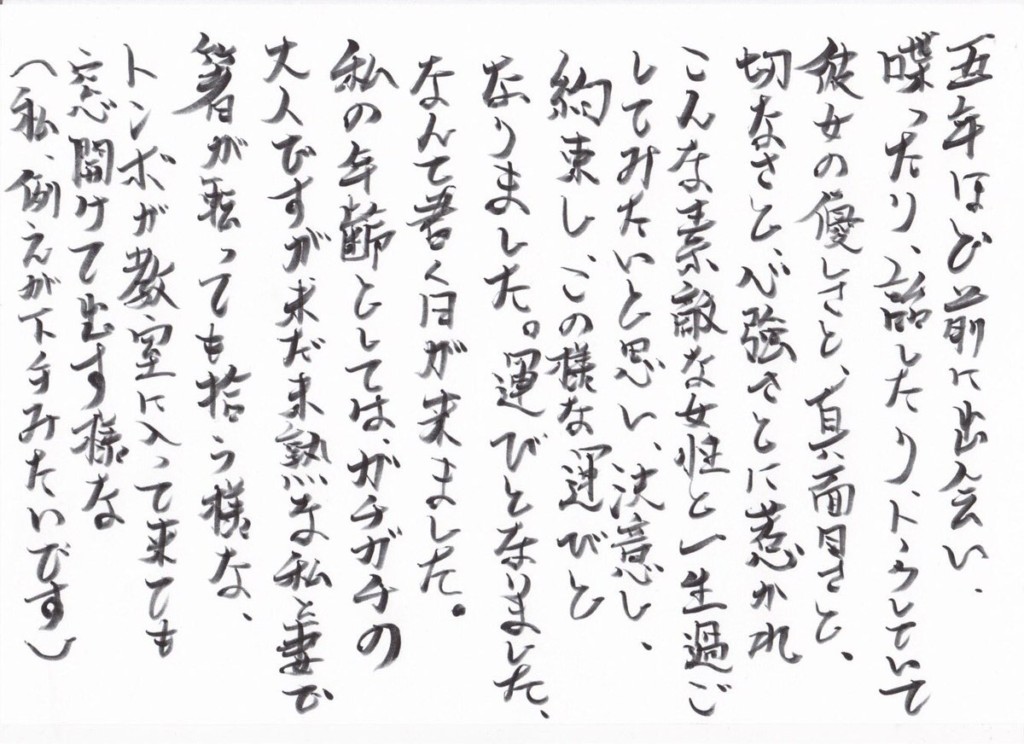 五年ほど前に出会い、
喋ったり、話したり、トラしていて
彼女の優しさと、真面目さと、
切なさと、心強さとに惹かれ
こんな素敵な女性と一生過ご
してみたいと思い、決意し、
約束し、この様な運びと
なりました。運びとなりました、
なんて書く日が来ました。
私の年齢としては、ガチガチの
大人ですが未だ未熟な私と妻で
箸が転っても拾う様な、
トンボが教室に入って来ても
窓開けて出す様な
(私、例えが下手みたいです)